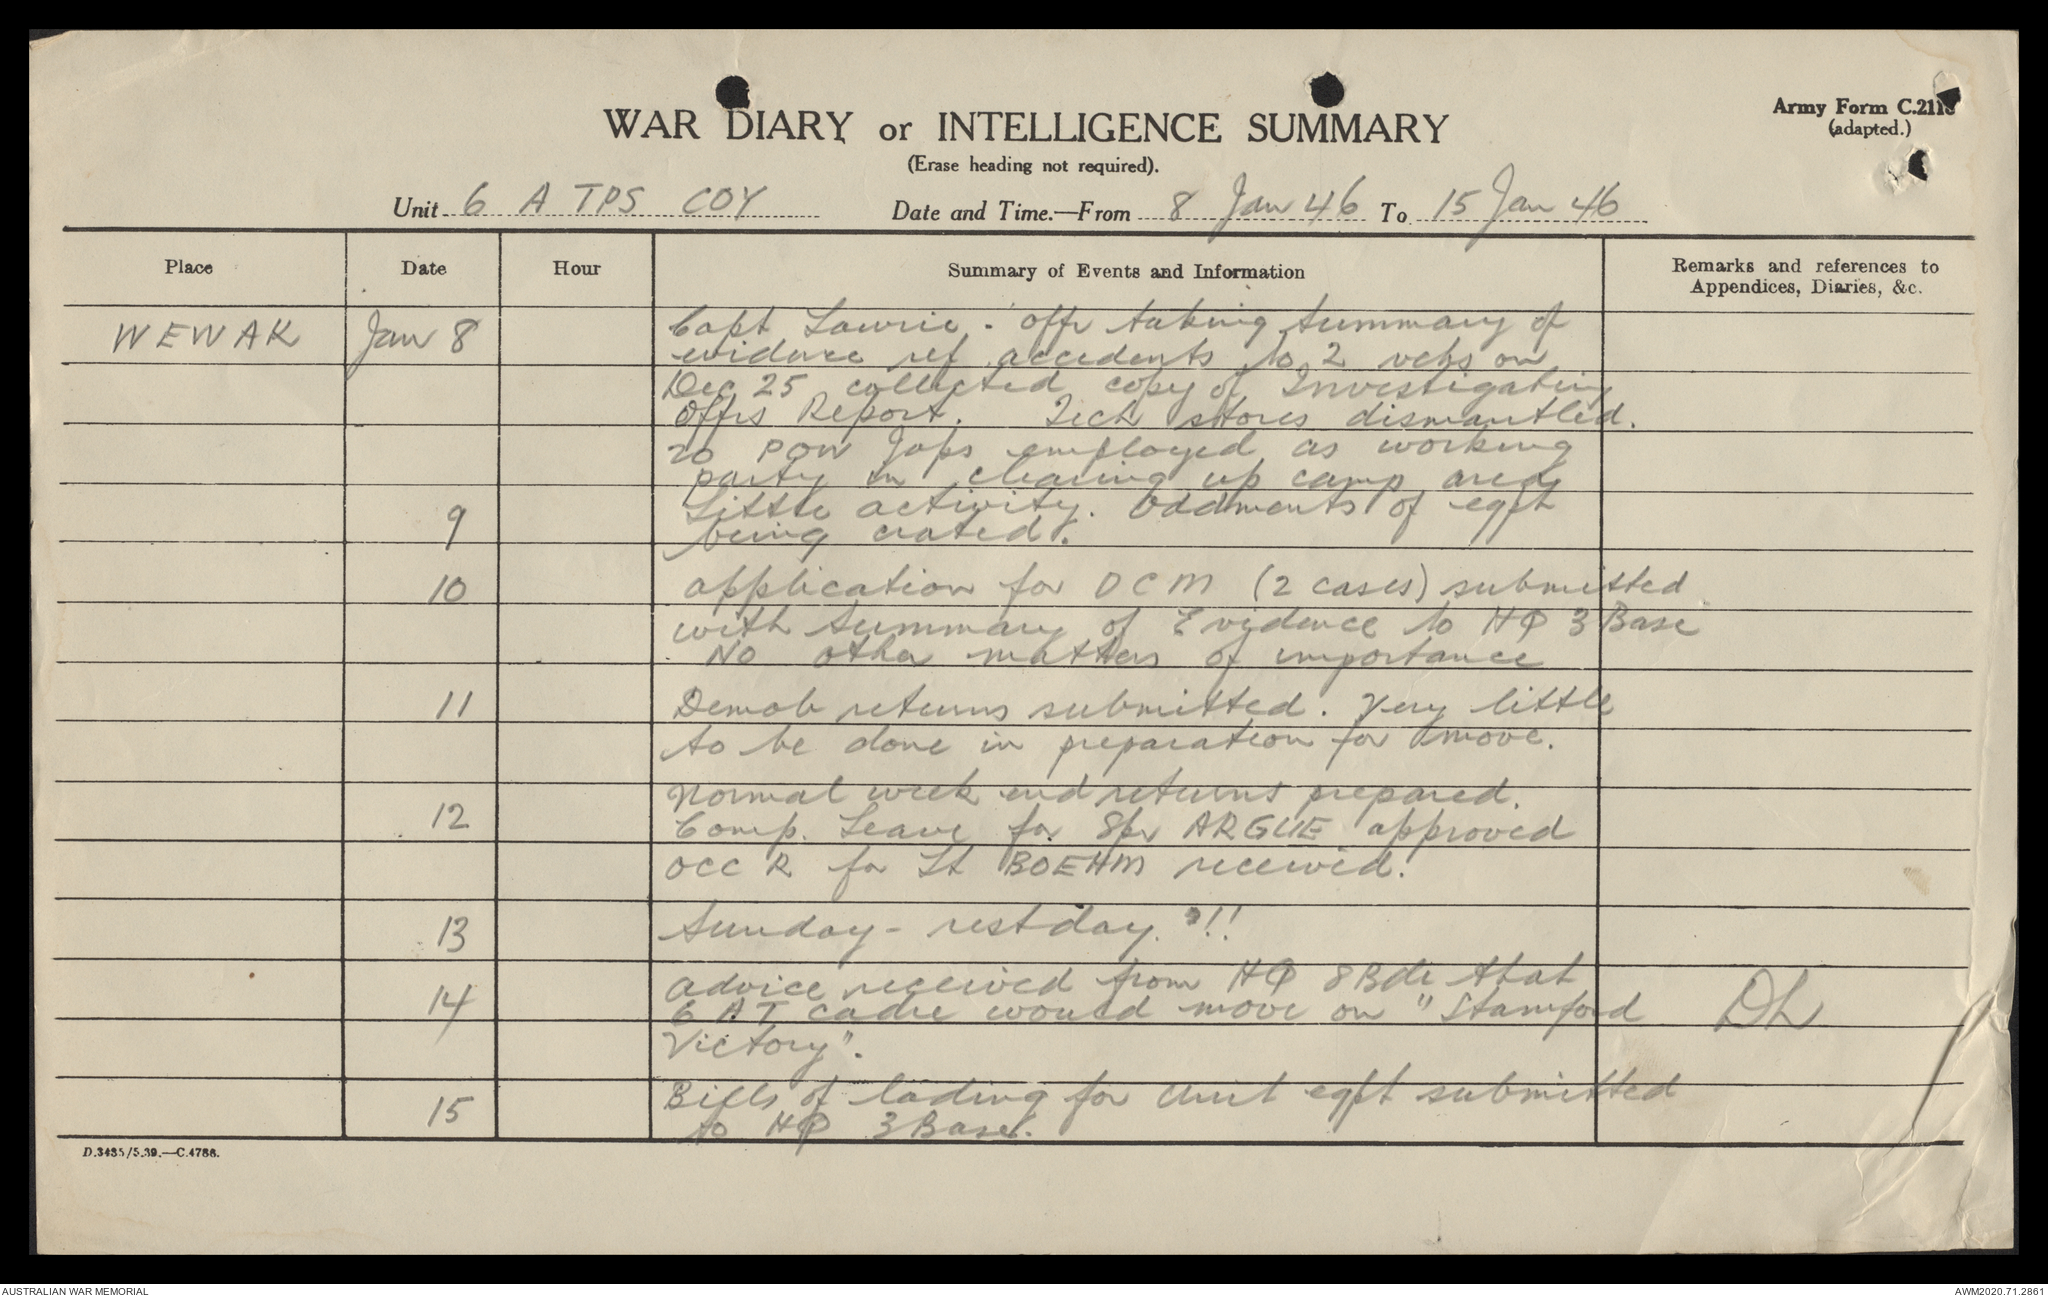 WAR DIARY or INTELLIGENCE SUMMARY
Army Form C.2118
(adapted.)
(Erase heading not required).
Unit 6 A TPS COY Date and Time.—From 8 Jan 46 To 15 Jan 46
Place Date Hour Summary of Events and Information Remarks and references to
Appendices, Diaries, &c.
WEWAK Jan 8 Capt Lawrie - offr taking summary of
evidence ref accidents to 2 vehs on
Dec 25 collected copy of Investigating
Offrs Report. Tech stores dismantled.
20 POW Japs employed as working
party in cleaning up camp area
9 Little activity. Oddments of eqpt
being crated.
10 application for DCM (2 cases) submitted
with summary of Evidence to HQ 3 Base
No other matters of importance
11 Demob returns submitted. Very little
to be done in preparation for move.
12 Normal week end returns prepared.
Comp. Leave for Spr ARGUE approved
OCC R for Lt BOEHM received.
13 Sunday - rest day. ?!!
14 advice received from HQ 8 Bde that
6 A.T cadre would move on "Stamford
Victory". DL
15 Bills of lading for Unit eqpt submitted
to HQ 3 Base.
D.3435/5.39.—C.4788.
AUSTRALIAN WAR MEMORIAL
AWM2020.71.2861